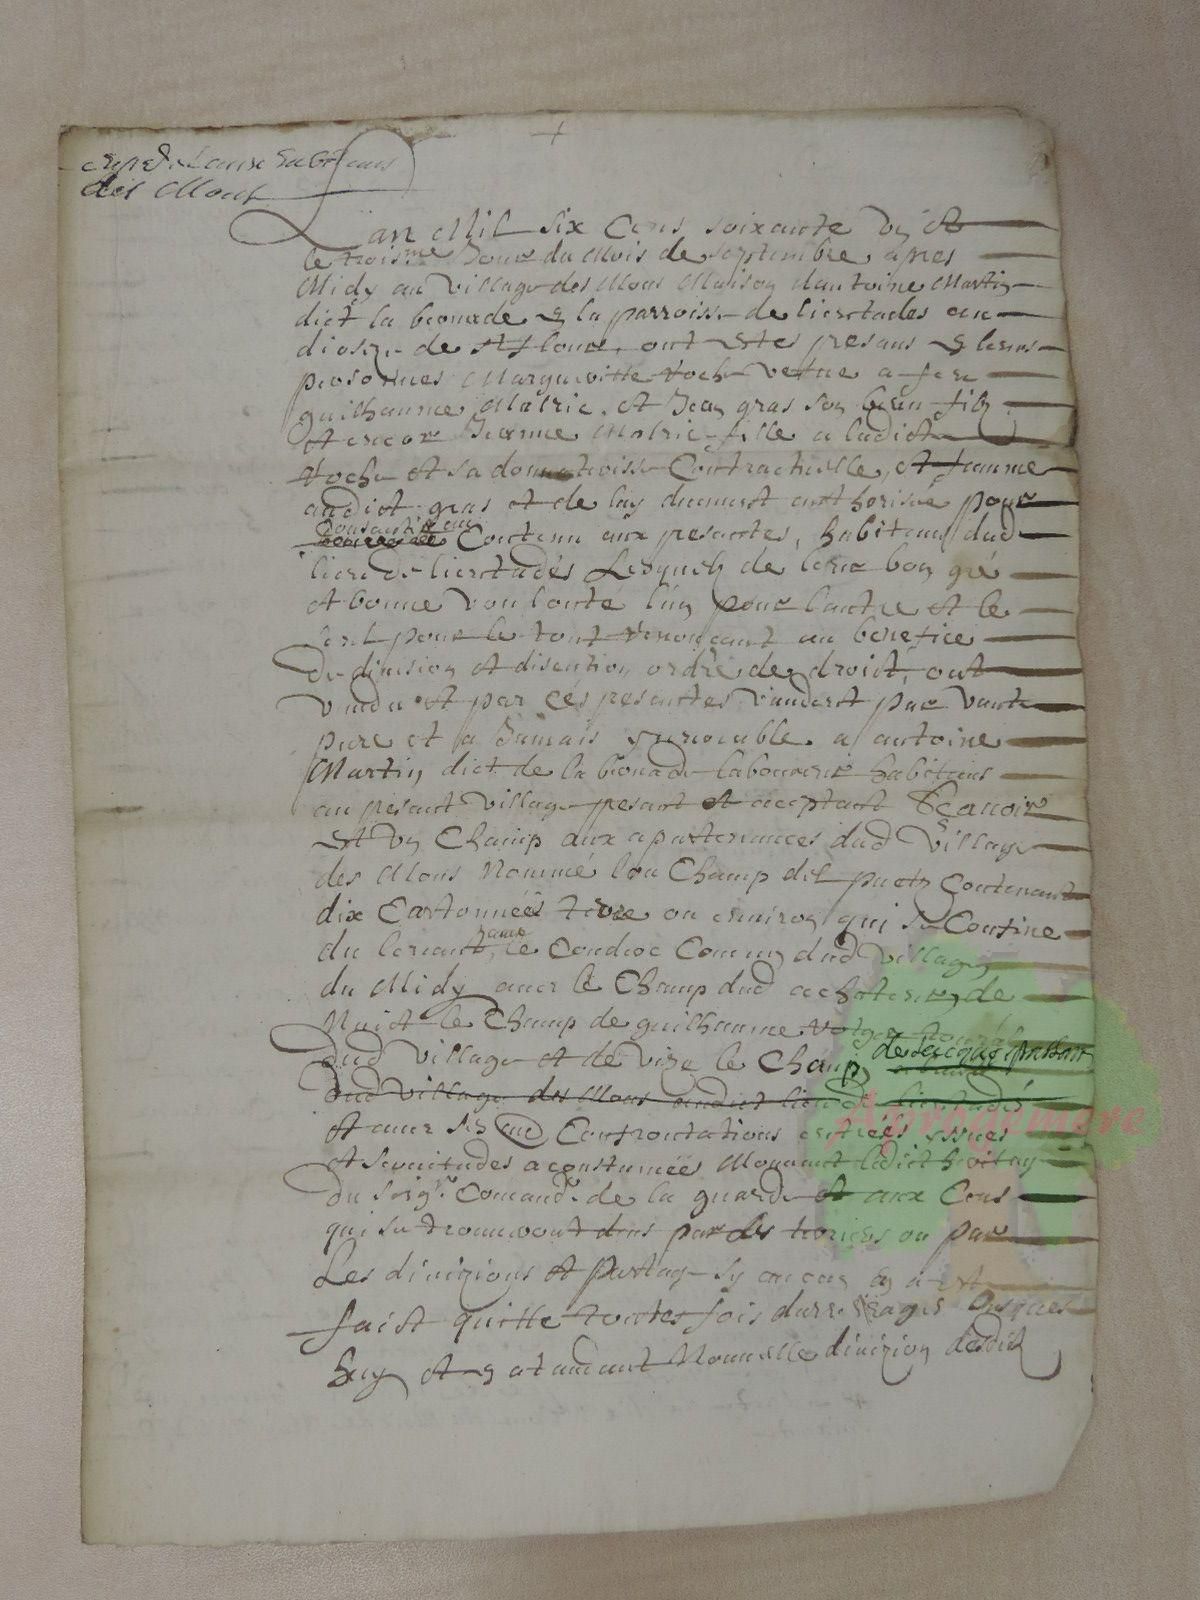 des Mons
Lan Mil six Cens soixante Un et
le trois.me Jour du Mois de septembre apres
Midy au Village des Mons Maison dantoine Martin
dict la bouade en la parroisse de lieutades au
dioseze de st flour, ont estes presans en leurs
personnes Margueritte Roche Vefue a feu
guilhaume Malric, et Jean gras son beau fils
et encore Jeanne Malric fille a ladicte
Roche et sa donnatrisse Contractuelle, et famme
audict gras et de luy dumant authorisée pour
Contenu aux presantes, habitans dud
lieu de lieutadés Lesquels de leur bon gré
et bonne voulonté l'un pour l'autre et le
seul pour le tout renonçant au benefice
de diuision et discution ordre de droict, ont
vandu et par cés presantes vandent par vante
pure et a Jamais yrreuocable a antoine
Martin dict de la bouade laboureur habitans
au presant village presant et aceptant Scauoir
est un Champ aux apartenances dud Village
des Mons Nommé lou Champ del puetz Contenant
dix Cartonnéés terre ou enuiron qui se Confine
du leuant le Comun dud Village
du Midy auec le Champ dud achateur, de
Nuict le Champ de guilhaume
dud village et de vize le Champ de Jacques
dud Village des Mons audict lieu de lieutadés
et auec sés aud Confrontations entréés yssues
et seruitudes acoustumées Mouuant ledict heritage
du seigr. Comandr. de la guarde et aux Cens
qui se trouueront deus par les terriers ou par
Les diuizions et partage sy aucun en a est
faict quitte toutes fois darrerages Jusques
huy et en atandant Nouuelle diuizion desdict
Aprogemere